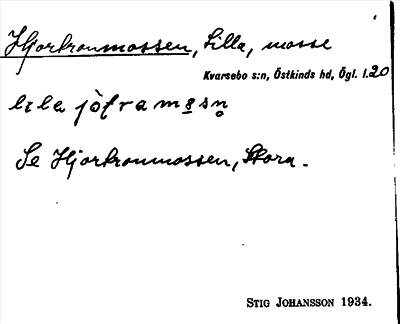 Hjortronmossen, Lilla, mosse
Kvarsebo s:n, Östkinds hd, Ögl. l. 20
Se Hjortronmossen, Stora.
STIG JOHANSSON 1934.